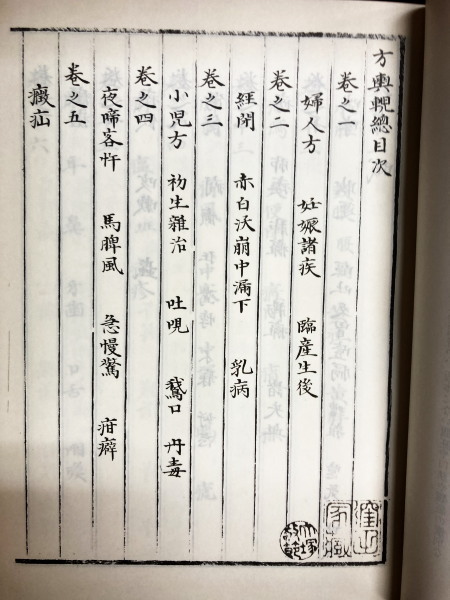 方輿輗總目次
卷之一
婦人方 妊娠諸疾 臨產生後
卷之二
經閉 赤白沃崩中漏下 乳病
卷之三
小児方 初生雜治 吐哯 鵞口 丹毒
卷之四
夜啼客忤 馬脾風 急慢驚 疳癖
卷之五
癥疝